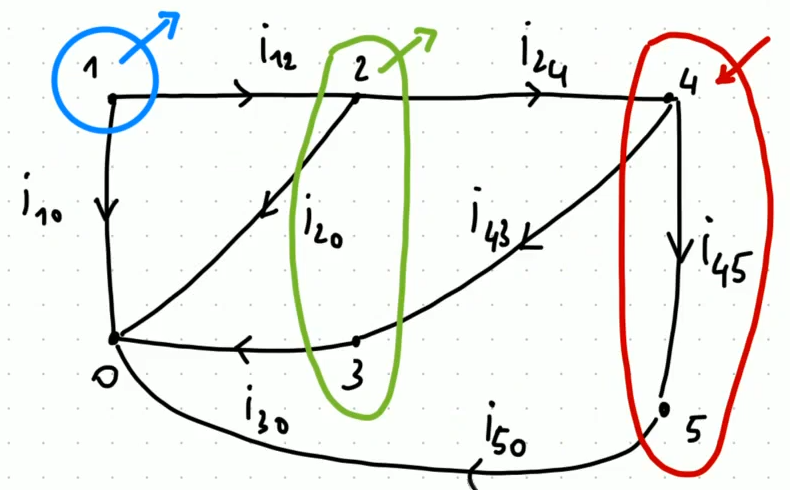 1
i₁₂
2
i₂₄
4
i₁₀
i₂₀
i₄₃
i₄₅
0
3
i₃₀
i₅₀
5